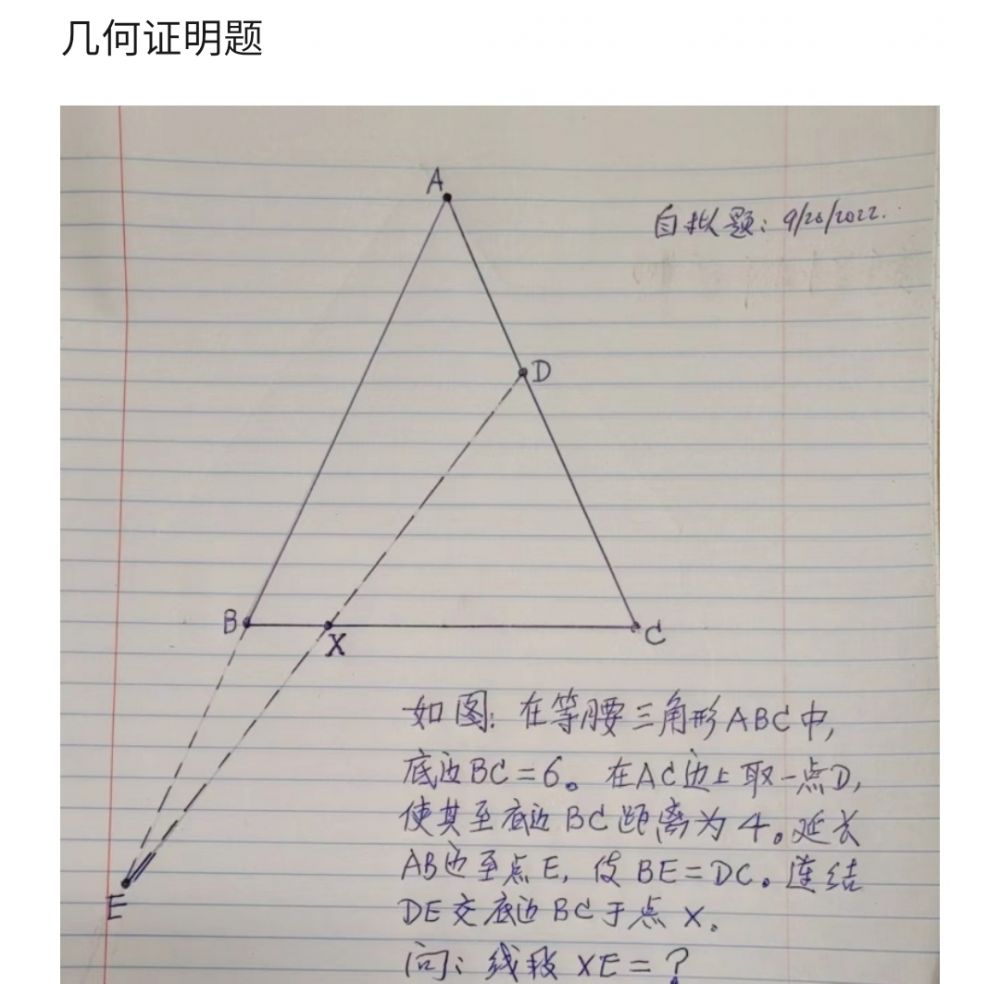 几何证明题
A
自拟题：9/26/2022.
D
B
X
C
E
如图：在等腰三角形ABC中，
底边BC=6。在AC边上取一点D，
使其至底边BC距离为4。延长
AB边至点E，使BE=DC。连结
DE交底边BC于点X。
问：线段XE=？